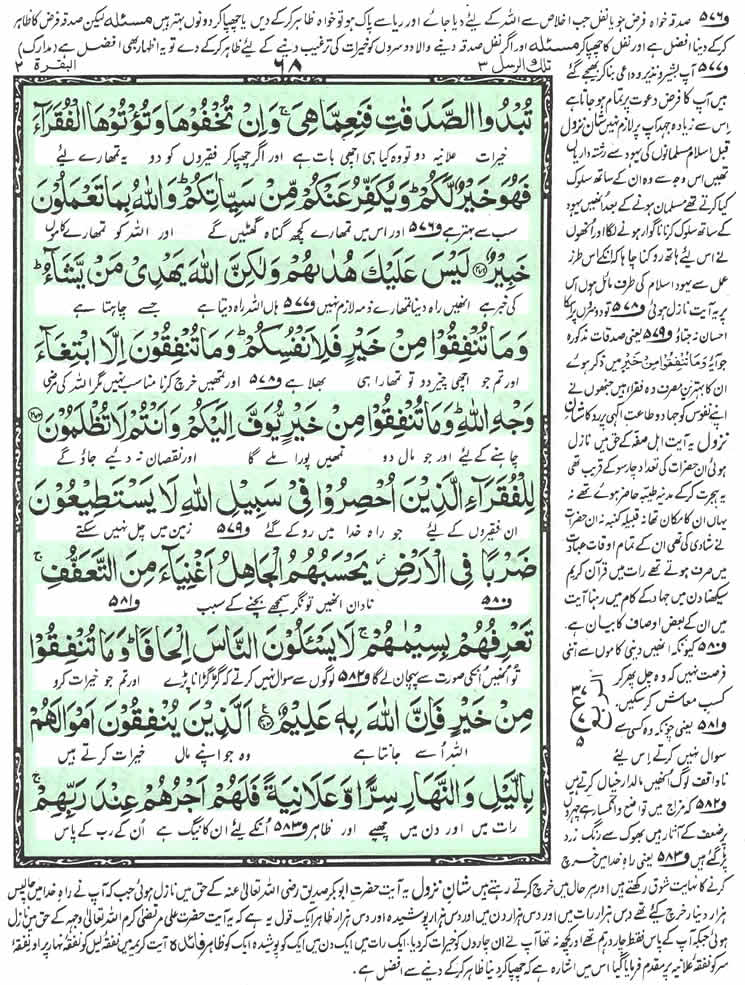 و۵۷۶ صدقہ خواہ فرض ہو یا نفل جب اخلاص سے اللہ کے لئے دیا جائے اور ریا سے پاک ہو تو خواہ ظاہر کرکے دیں یا چھپا کر دونوں بہتر ہیں مسئلہ لیکن صدقہ فرض کا ظاہر
کرکے دینا افضل ہے اور نفل کا چھپا کر مسئلہ اور اگر نفل صدقہ دینے والا دوسروں کو خیرات کی ترغیب دینے کے لئے ظاہر کرکے دے تو یہ اظہار بھی افضل ہے (مدارک)
تلك الرسل ٣
٦٨
البقرة ٢
تُبْدُوا الصَّدَقٰتِ فَنِعِمَّا هِیَ ۚ وَ اِنْ تُخْفُوْهَا وَ تُؤْتُوْهَا الْفُقَرَآءَ
خیرات علانیہ دو تو وہ کیا ہی اچھی بات ہے اور اگر چھپا کر فقیروں کو دو یہ تمھارے لئے
فَهُوَ خَیْرٌ لَّكُمْ ؕ وَ یُكَفِّرُ عَنْكُمْ مِّنْ سَیِّاٰتِكُمْ ؕ وَ اللّٰهُ بِمَا تَعْمَلُوْنَ
سب سے بہتر ہے و۵۷۶ اور اس میں تمھارے کچھ گناہ گھٹیں گے اور اللہ کو تمھارے کاموں
خَبِیْرٌ ﴿۲۷۱﴾ لَیْسَ عَلَیْكَ هُدٰىهُمْ وَ لٰكِنَّ اللّٰهَ یَهْدِیْ مَنْ یَّشَآءُ ؕ
کی خبر ہے انھیں راہ دینا تمھارے ذمہ لازم نہیں و۵۷۷ ہاں اللہ راہ دیتا ہے جسے چاہتا ہے
وَ مَا تُنْفِقُوْا مِنْ خَیْرٍ فَلِاَنْفُسِكُمْ ؕ وَ مَا تُنْفِقُوْنَ اِلَّا ابْتِغَآءَ
اور تم جو اچھی چیز دو تو تمھارا ہی بھلا ہے و۵۷۸ اور تمھیں خرچ کرنا مناسب نہیں مگر اللہ کی مرضی
وَجْهِ اللّٰهِ ؕ وَ مَا تُنْفِقُوْا مِنْ خَیْرٍ یُّوَفَّ اِلَیْكُمْ وَ اَنْتُمْ لَا تُظْلَمُوْنَ ﴿۲۷۲﴾
چاہنے کے لئے اور جو مال دو تمھیں پورا ملے گا اور نقصان نہ دیے جاؤ گے
لِلْفُقَرَآءِ الَّذِیْنَ اُحْصِرُوْا فِیْ سَبِیْلِ اللّٰهِ لَا یَسْتَطِیْعُوْنَ
ان فقیروں کے لئے جو راہ خدا میں روکے گئے و۵۷۹ زمین میں چل نہیں سکتے
ضَرْبًا فِی الْاَرْضِ ؗ یَحْسَبُهُمُ الْجَاهِلُ اَغْنِیَآءَ مِنَ التَّعَفُّفِ ۚ
و۵۸۰ نادان انھیں تونگر سمجھے بچنے کے سبب و۵۸۱
تَعْرِفُهُمْ بِسِیْمٰىهُمْ ۚ لَا یَسْـَٔلُوْنَ النَّاسَ اِلْحَافًا ؕ وَ مَا تُنْفِقُوْا
تو انھیں اُنکی صورت سے پہچان لے گا و۵۸۲ لوگوں سے سوال نہیں کرتے کہ گڑگڑانا پڑے اور تم جو خیرات کرو
مِنْ خَیْرٍ فَاِنَّ اللّٰهَ بِهٖ عَلِیْمٌ ﴿۲۷۳﴾ اَلَّذِیْنَ یُنْفِقُوْنَ اَمْوَالَهُمْ
اللہ اُسے جانتا ہے وہ جو اپنے مال خیرات کرتے ہیں
بِالَّیْلِ وَ النَّهَارِ سِرًّا وَّ عَلَانِیَةً فَلَهُمْ اَجْرُهُمْ عِنْدَ رَبِّهِمْ ۚ
رات میں اور دن میں چھپے اور ظاہر و۵۸۳ اُنکے لئے ان کا نیگ ہے اُن کے رب کے پاس
و۵۷۷ آپ بشیر و نذیر و داعی بنا کر بھیجے گئے
ہیں آپ کا فرض دعوت پر تمام ہو جاتا ہے
اس سے زیادہ جہد آپ پر لازم نہیں شان نزول
قبل اسلام مسلمانوں کی یہود سے رشتہ داریاں
تھیں اس وجہ سے وہ ان کے ساتھ سلوک
کیا کرتے تھے مسلمان ہونے کے بعد انھیں یہود
کے ساتھ سلوک کرنا ناگوار ہونے لگا اور انھوں
نے اس لئے ہاتھ روکنا چاہا کہ انکے اس طرز
عمل سے یہود اسلام کی طرف مائل ہوں اس
پر یہ آیت نازل ہوئی و۵۷۸ تو دوسروں پر اسکا
احسان نہ جتاؤ و۵۷۹ یعنی صدقات مذکورہ
جو آیہ وَمَا تُنْفِقُوْا مِنْ خَيْرٍ میں ذکر ہوئے
ان کا بہترین مصرف وہ فقرا ہیں جنھوں نے
اپنے نفوس کو جہاد و طاعت الٰہی پر روکا شان
نزول یہ آیت اہل صفہ کے حق میں نازل
ہوئی ان حضرات کی تعداد چار سو کے قریب تھی
یہ ہجرت کرکے مدینہ طیبہ حاضر ہوئے تھے نہ
یہاں ان کا مکان تھا نہ قبیلہ کنبہ نہ ان حضرات
نے شادی کی تھی ان کے تمام اوقات عبادت
میں صرف ہوتے تھے رات میں قرآن کریم
سیکھنا دن میں جہاد کے کام میں رہنا آیت
میں ان کے بعض اوصاف کا بیان ہے
و۵۸۰ کیونکہ انھیں دینی کاموں سے اتنی
فرصت نہیں کہ وہ چل پھر کر
کسب معاش کر سکیں
و۵۸۱ یعنی چونکہ وہ کسی سے
سوال نہیں کرتے اس لئے
ناواقف لوگ انھیں مالدار خیال کرتے ہیں
و۵۸۲ کہ مزاج میں تواضع و انکسار ہے چہروں
پر ضعف کے آثار ہیں بھوک سے رنگ زرد
پڑ گئے ہیں و۵۸۳ یعنی راہ خدا میں خرچ
۳۷
ع
۵
کرنے کا نہایت شوق رکھتے ہیں اور ہر حال میں خرچ کرتے رہتے ہیں شان نزول یہ آیت حضرت ابوبکر صدیق رضی اللہ تعالیٰ عنہ کے حق میں نازل ہوئی جب کہ آپ نے راہ خدا میں چالیس
ہزار دینار خرچ کئے تھے دس ہزار رات میں اور دس ہزار دن میں اور دس ہزار پوشیدہ اور دس ہزار ظاہر ایک قول یہ ہے کہ یہ آیت حضرت علی مرتضیٰ کرم اللہ تعالیٰ وجہہ کے حق میں نازل
ہوئی جبکہ آپ کے پاس فقط چار درہم تھے اور کچھ نہ تھا آپ نے ان چاروں کو خیرات کردیا۔ ایک رات میں ایک دن میں ایک کو پوشیدہ ایک کو ظاہر فائدہ آیت کریمہ میں نفقہ لیل کو نفقہ نہار پر اور نفقہ
سر کو نفقہ علانیہ پر مقدم فرمایا گیا اس میں اشارہ ہے کہ چھپا کر دینا ظاہر کرکے دینے سے افضل ہے۔